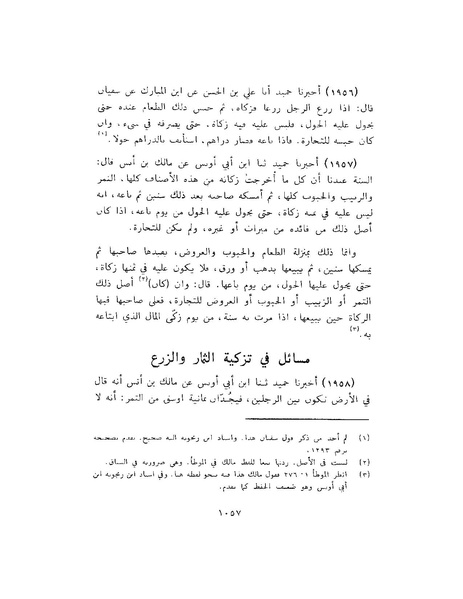 (١٩٥٦) أخبرنا حميد أنا علي بن الحسن عن ابن المبارك عن سفيان
قال: اذا زرع الرجل زرعا فزكاه، ثم حبس ذلك الطعام عنده حتى
يحول عليه الحول، فليس عليه فيه زكاة، حتى يصرفه في شيء، وان
كان حبسه للتجارة. فاذا باعه فصار دراهم، استأنف بالدراهم حولا.(١)
(١٩٥٧) أخبرنا حميد ثنا ابن أبي أويس عن مالك بن أنس قال:
السنة عندنا أن كل ما أُخرجتْ زكاته من هذه الأصناف كلها، التمر
والزبيب والحبوب كلها، ثم أمسكه صاحبه بعد ذلك سنين ثم باعه، انه
ليس عليه في ثمنه زكاة، حتى يحول عليه الحول من يوم باعه، اذا كان
أصل ذلك من فائدة من ميراث أو غيره، ولم يكن للتجارة.
وانما ذلك بمنزلة الطعام والحبوب والعروض، يفيدها صاحبها ثم
يمسكها سنين، ثم يبيعها بذهب أو ورق، فلا يكون عليه في ثمنها زكاة،
حتى يحول عليها الحول، من يوم باعها. قال: وان (كان)(٢) أصل ذلك
التمر أو الزبيب أو الحبوب أو العروض للتجارة، فعلى صاحبها فيها
الزكاة حين يبيعها، اذا مرت به سنة، من يوم زكّى المال الذي ابتاعه
به.(٣)
مسائل في تزكية الثمار والزرع
(١٩٥٨) أخبرنا حميد ثنا ابن أبي أويس عن مالك بن أنس أنه قال
في الأرض تكون بين الرجلين، فيجُدّان ثمانية أوسق من التمر: أنه لا
(١) لم أجد من ذكر قول سفيان هذا. واسناد ابن زنجويه اليه صحيح. تقدم تصحيحه
برقم ١٢٩٣.
(٢) ليست في الأصل، زدتها تبعا للفظ مالك في الموطأ. وهي ضرورية في السياق.
(٣) انظر الموطأ ١: ٢٧٦ فقول مالك هذا فيه بنحو لفظه هنا. وفي اسناد ابن زنجويه ابن
أبي أويس وهو ضعيف الحفظ كما تقدم.
١٠٥٧